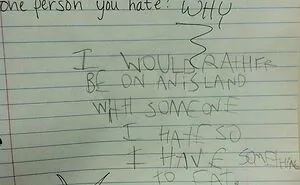 one person you hate? WHY
I WOULD RATHER
BE ON ANISLAND
WITH SOMEONE
I HATE SO
I HAVE SOMETHING
TO EAT.